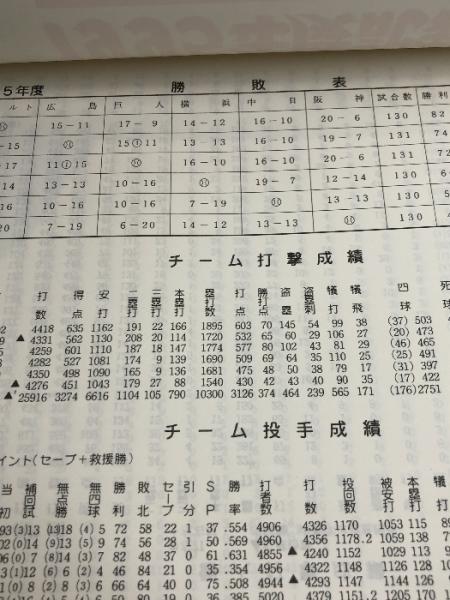 5年度 勝敗表
ルト 広島 巨人 横浜 中日 阪神 試合数 勝利
15－11 17－9 14－12 16－10 20－6 130 82
－15 15①11 13－13 16－10 19－7 131 74
－17 11①15 16－10 16－10 20－6 131 72
14 13－13 10－16 19－7 12－14 130
－16 10－16 10－16 7－19 13－13 130
20 7－19 6－20 14－12 13－13 130
チーム打撃成績
打数 得点 安打 二塁打 三塁打 本塁打 塁打数 打点 勝利打点 盗塁 盗塁刺 犠打 犠飛 四球 死球
4418 635 1162 191 22 166 1895 603 70 145 54 99 38 (37)503
▲4331 562 1130 208 20 114 1720 532 65 60 29 106 27 (20)473
4259 601 1110 187 18 147 1774 577 80 102 43 81 29 (46)465
4282 527 1081 174 9 139 1690 509 69 64 35 110 25 (25)491
4350 498 1090 165 9 136 1681 475 48 50 38 79 17 (31)397
▲4276 451 1043 179 27 88 1540 430 42 43 40 90 35 (17)422
25916 3274 6616 1104 105 790 10300 3126 374 464 239 565 171 (176)2751
チーム投手成績
イント(セーブ＋救援勝)
当初 補回試 無点勝 無四球 勝利 敗北 セーブ 引分 SP 勝率 打者数 打数 投回数 被安打 本塁打 犠打
93(3)13 (13)18 (4)5 72 58 22 1 37 .554 4906 4326 1170 1053 115
02(0)14 (9)13 (5)9 74 56 28 1 50 .569 4960 4356 1178.2 1059 138
06(0)7 (8)14 (3)7 82 48 37 0 61 .631 4855 ▲4240 1152 1029 113
(1)12 (6)6 (2)4 46 84 21 0 35 .354 4956 4322 1148 1126 128
(0)8 (2)8 (3)6 66 64 40 0 75 .508 4944 ▲4293 1147 1144 126
50 80 19 0 36 .385 5020 4379 1151.2 1205 170